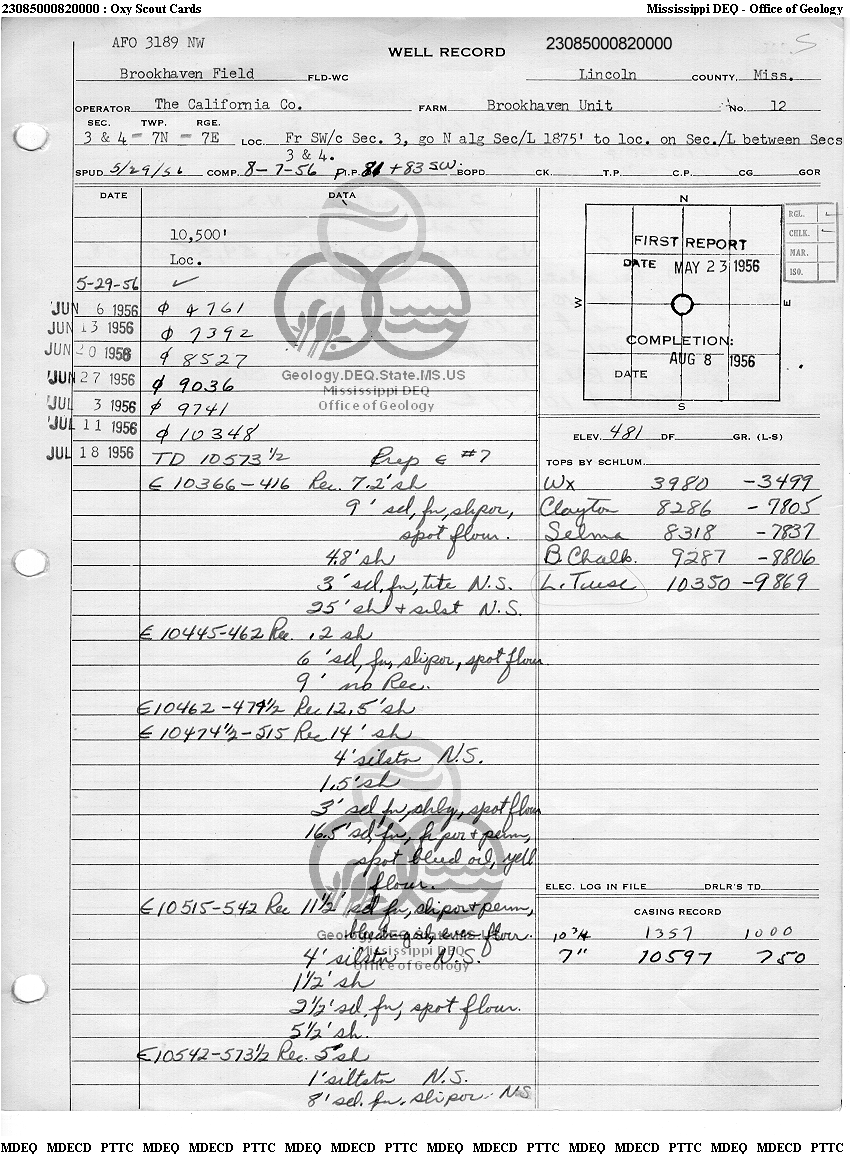 23085000820000 : Oxy Scout Cards Mississippi DEQ - Office of Geology
AFO 3189 NW
WELL RECORD 23085000820000 S
Brookhaven Field FLD-WC Lincoln COUNTY, Miss.
OPERATOR The California Co. FARM Brookhaven Unit No. 12
SEC. TWP. RGE.
3 & 4 - 7N - 7E LOC. Fr SW/c Sec. 3, go N alg Sec/L 1875' to loc. on Sec./L between Secs
3 & 4.
SPUD 5/29/56 COMP. 8-7-56 P.P. 81 + 83 SW. BOPD CK. T.P. C.P. CG GOR
DATE DATA
10,500'
Loc.
5-29-56 ✓
JUN 6 1956 φ 4761
JUN 13 1956 φ 7392
JUN 20 1956 φ 8527
JUN 27 1956 φ 9036
JUL 3 1956 φ 9741
JUL 11 1956 φ 10348
JUL 18 1956 TD 10573 1/2 Prep € #7
€ 10366-416 Rec. 7.2' sh
9' sd, fn, slipor,
spot flour.
4.8' sh
3' sd, fn, tite N.S.
25' sh + silst N.S.
€ 10445-462 Rec. .2 sh
6' sd, fn, slipor, spot flour
9' no Rec.
€ 10462-474 1/2 Rec 12.5' sh
€ 10474 1/2-515 Rec 14' sh
4' silstn N.S.
1.5' sh
3' sd fn, shly, spot flour
16.5' sd, fn, fr por + perm,
spot bleed oil, yell
flour.
€ 10515-542 Rec 11 1/2' sd fn, slipor + perm,
flour.
4' silstn N.S.
1 1/2' sh
2 1/2' sd, fn, spot flour.
5 1/2' sh.
€ 10542-573 1/2 Rec. 5' sh
1' siltstn N.S.
8' sd. fn. slipor. NS
Geology.DEQ.State.MS.US
Mississippi DEQ
Office of Geology
Mississippi DEQ
Office of Geology
N
W
E
S
FIRST REPORT
DATE MAY 23 1956
COMPLETION:
AUG 8 1956
DATE
RGL.
CHLK.
MAR.
ISO.
ELEV. 481 DF. GR. (L-S)
TOPS BY SCHLUM.
Wx 3980 -3499
Clayton 8286 -7805
Selma 8318 -7837
B. Chalk. 9287 -8806
L. Tusc 10350 -9869
ELEC. LOG IN FILE DRLR'S TD
CASING RECORD
10 3/4 1357 1000
7" 10597 750
MDEQ MDECD PTTC MDEQ MDECD PTTC MDEQ MDECD PTTC MDEQ MDECD PTTC MDEQ MDECD PTTC MDEQ MDECD PTTC